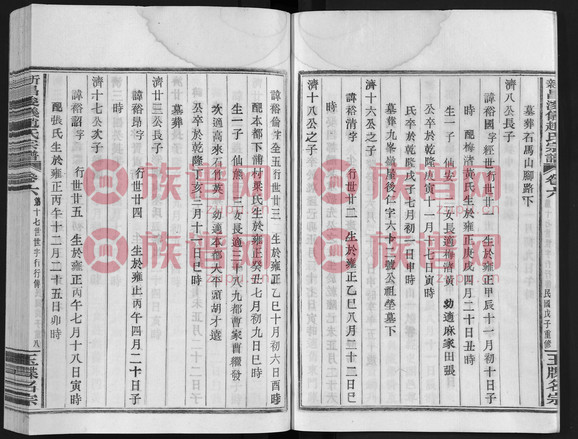 新昌渓儀趙氏宗譜 卷六
民國戊子重修
玉牒名宗
墓葬石馬山腳路下
濟八公長子
諱裕國字經世行世廿一 生於雍正甲辰十一月初十子
時 配梅渚黃氏生於雍正庚戌四月二十日丑時
生一子 仙安 二女長適梅渚黃 幼適麻家田張
公卒於乾隆庚寅十一月十七日寅時
氏卒於乾隆戊子七月初一日申時
墓葬九峯屋後仁字六十二號公祖塋墓下
濟十六公之子
諱裕清字 行世廿二 生於雍正乙巳八月二十二日巳
時
濟十八公之子
諱裕倫字全五行世廿三 生於雍正乙巳十月初六日酉時
配本都下浦村梁氏生於雍正癸丑七月初九日巳時
生一子 仙熊 三女長適三十八九都曹家曹耀發
次適高來石竹英 幼適本都大平頭胡才遠
公卒於乾隆丁亥三月十一日巳時
墓葬
濟廿三公長子
諱裕昂字 行世廿四 生於雍正丙午四月二十日子
時
濟十七公次子
諱裕詔字 行世廿五 生於雍正丙午七月十八日寅時
配張氏生於雍正丙午十二月二十五日卯時
新昌渓儀趙氏宗譜 卷六
第十七世世字行行傳
八
玉牒名宗
族譜网
族譜网
族譜网
族譜网